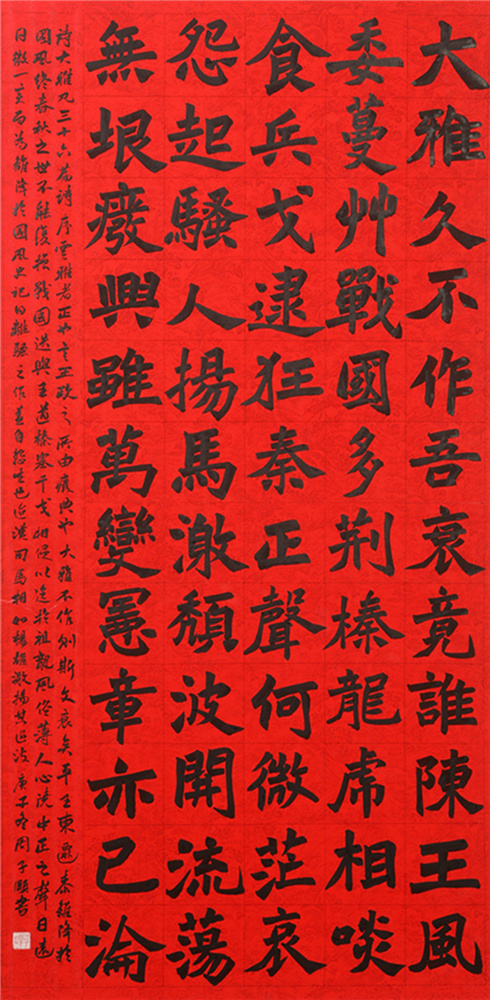 大雅久不作吾衰竟誰陳王風
委蔓艸戰國多荊榛龍虎相啖
食兵戈逮狂秦正聲何微茫哀
怨起騷人揚馬激頹波開流蕩
無垠廢興雖萬變憲章亦已淪
詩大雅凡三十六篇詩序雲雅者正也言王政之所由廢興也大雅不作則斯文衰矣平王東遷黍離降於
國風終春秋之世不能復振戰國迭興王道榛塞干戈相侵以迄於祖龍風俗薄人心澆中正之聲日遠
日微一變而為離降於國風史記曰離騷之作蓋自怨生也迨漢司馬相如楊雄激揚其頹波庚子冬周子書